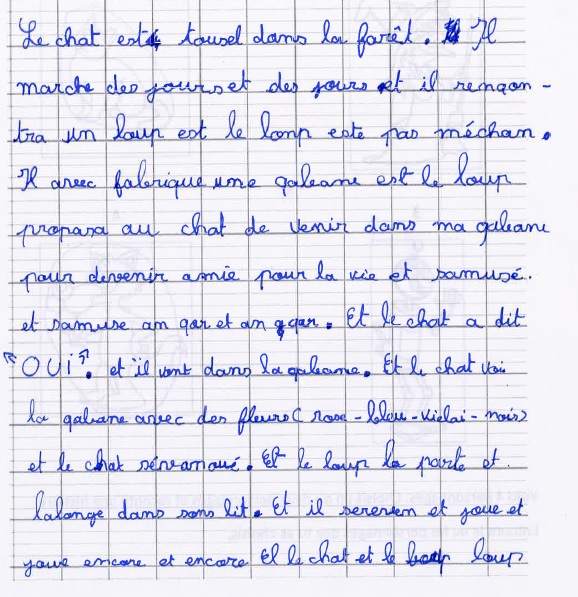 Le chat est tousel dans la farêt. Il
marche des jours et des jours et il rençon-
tra un loup est le loup este pas méchan.
Il avec fabrique une qabane est le loup
propasa au chat de venir dans ma qabane
pour devenir amie pour la vie et samusé.
et samuse an qar et an qar. Et le chat a dit
"OUi". et il vont dans la qabane. Et le chat voi
la qabane avec des fleurs ( rose - bleu - vielai - noir)
et le chat sénvamoué. Et le loup la parte et
lalonge dans sons lit. Et il sereven et joue et
joue encore et encore El le chat et le loup